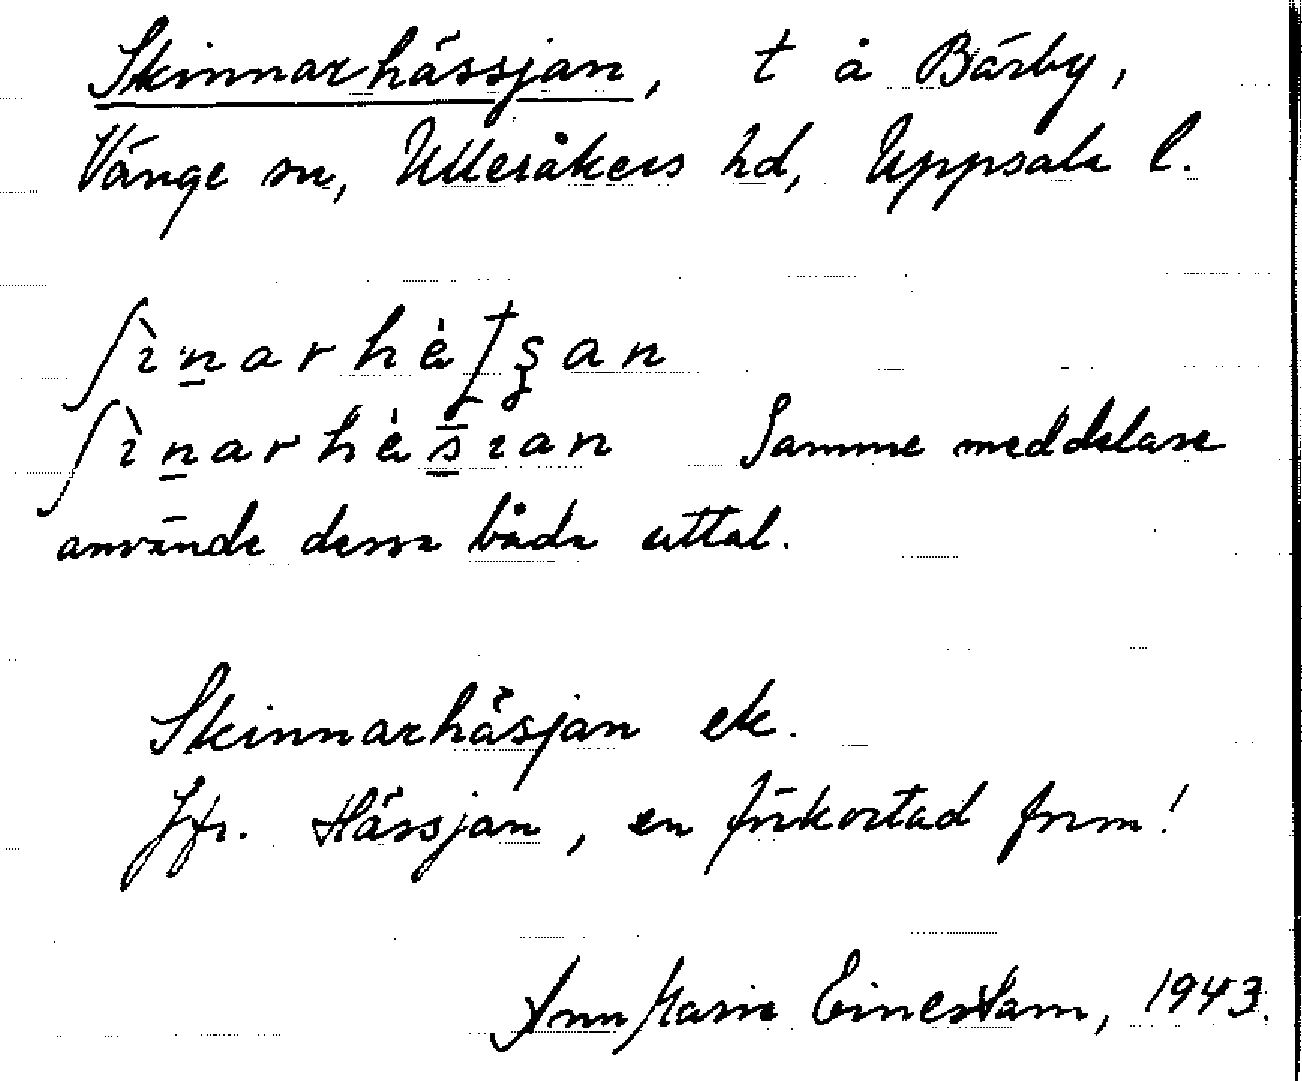 Skinnarhässjan, t å Bärby,
Vänge sn, Ulleråkers hd, Uppsala l.
Samme meddelare
använde dessa båda uttal.
Skinnarhäsjan ek.
Jfr. Hässjan, en förkortad form!
Ann Marie Einerstam, 1943.